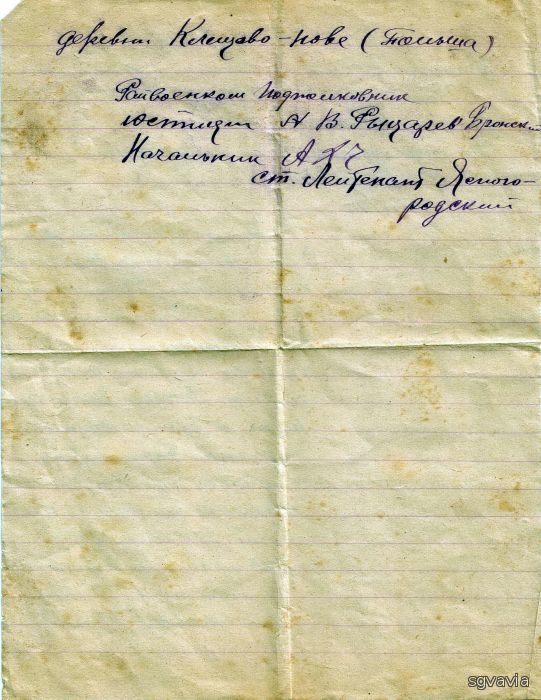 деревни Клещаво-нове (Польша)
Райвоенком Подполковник
юстиции А В. Рыцарев Бронск
Начальник АХЧ
ст. Лейтенант Ясного-
родский
sgvavia